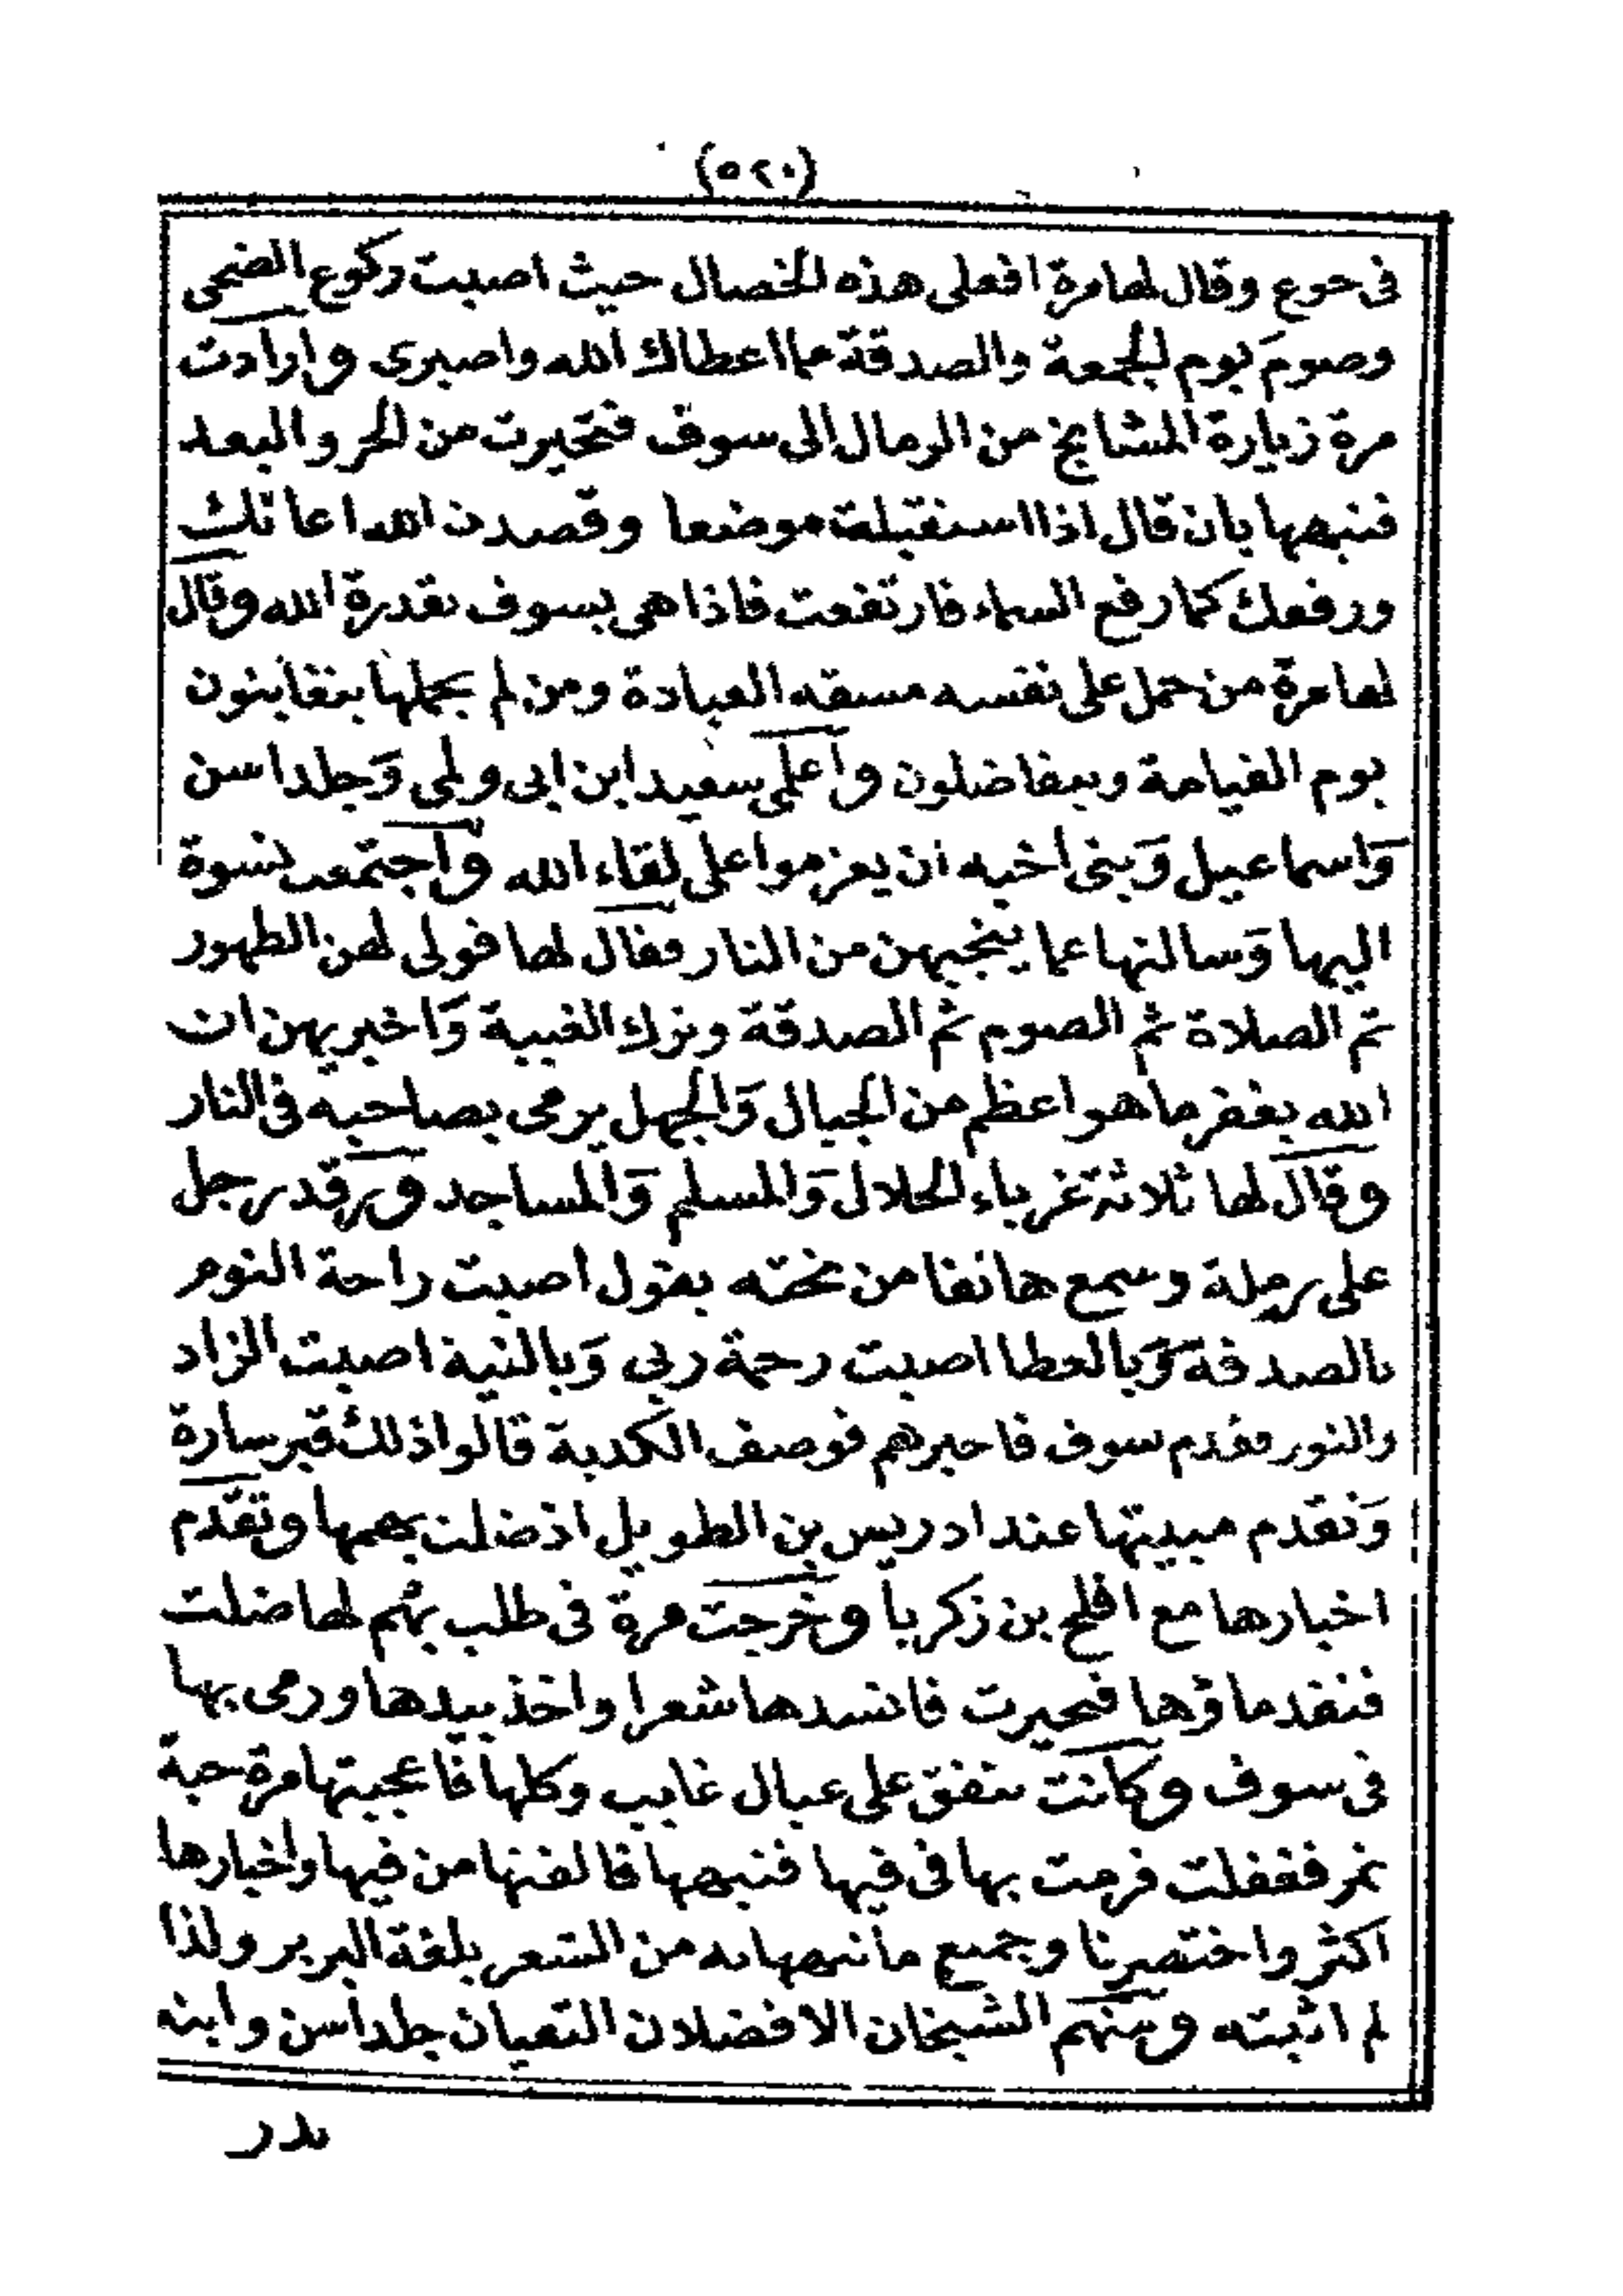 (٥٢٠)
فى جوع وقال لها مرة افعلى هذه الخصال حيث اصبت ركوع الضحى
وصوم يوم الجمعة والصدقة مما اعطاك الله واصبرى وارادت
مرة زيارة المشايخ من الرمال الى سوف فتحيرت من الحر والبعد
فنبهها بان قال اذا استقبلت موضعا وقصدت الله اعانك
ورفعك كما رفع السماء فارتفعت فاذا هى بسوف بقدرة الله وقال
لها مرة من حمل على نفسه مسقه العبادة ومن لم يحملها يتغابنون
يوم القيامة ويتفاضلون واعلمى سعيد ابن ابى ولمى وجلداسن
واسماعيل وبنى اخيه ان يعزموا على لقاء الله واجتمعت نسوة
اليها وسالنها عما ينجيهن من النار فقال لها قولى لهن الطهور
ثم الصلاة ثم الصوم ثم الصدقة وترك الغيبة واخبريهن ان
الله يغفر ما هو اعظم من الجبال والجهل يرمى بصاحبه فى النار
وقال لها ثلاثة غرباء الحلال والمسلم والمساجد ورقد رجل
على رملة وسمع هاتفا من تحته يقول اصبت راحة النوم
بالصدقة وبالعطا اصبت رحمة ربى وبالنية اصبت الزاد
والنور فقدم سوف فاخبرهم فوصف الكدية قالوا ذلك قبر سارة
وتقدم مبيتها عند ادريس بن الطويل اذ ضلت بهمها وتقدم
اخبارها مع افلح بن زكريا وخرجت مرة فى طلب بهم لها ضلت
فنفد ماؤها فتحيرت فانشدها شعرا واخذ بيدها ورمى بها
فى سوف وكانت تنفق على عيال غايب وكلها فاعجبتها مرة حبة
تمر فغفلت فرمت بها فى فيها فنبهها فالقتها من فيها واخبارها
اكثر واختصرنا وجميع ما نبهها به من الشعر بلغة البربر ولذا
لم اثبته ومنهم الشيخان الافضلان التقيان جلداسن وابنه
بدر